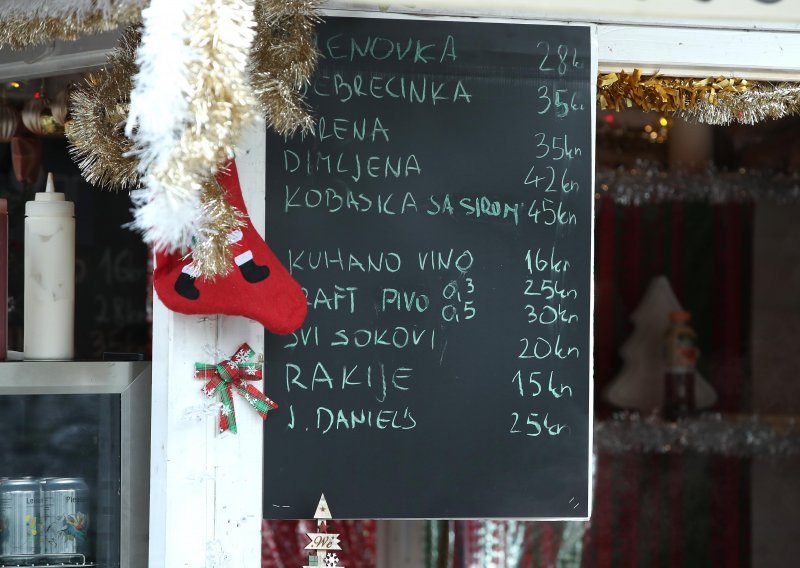 RENOVKA 28k
DEBRECINKA 35kn
35kn
DIMLJENA 42kn
KOBASICA SA SIROM 45kn
KUHANO VINO 16kn
PIVO 0,3 25kn
0,5 30kn
SVI SOKOVI 20kn
RAKIJE 15kn
J. DANIEL'S 25kn